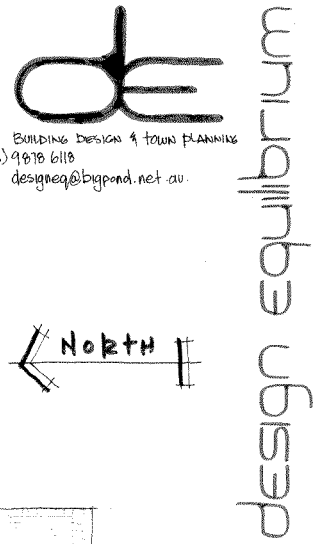 de
BUILDING DESIGN & TOWN PLANNING
)9878 6118
designeq@bigpond.net.au.
NORTH
design equilibrium